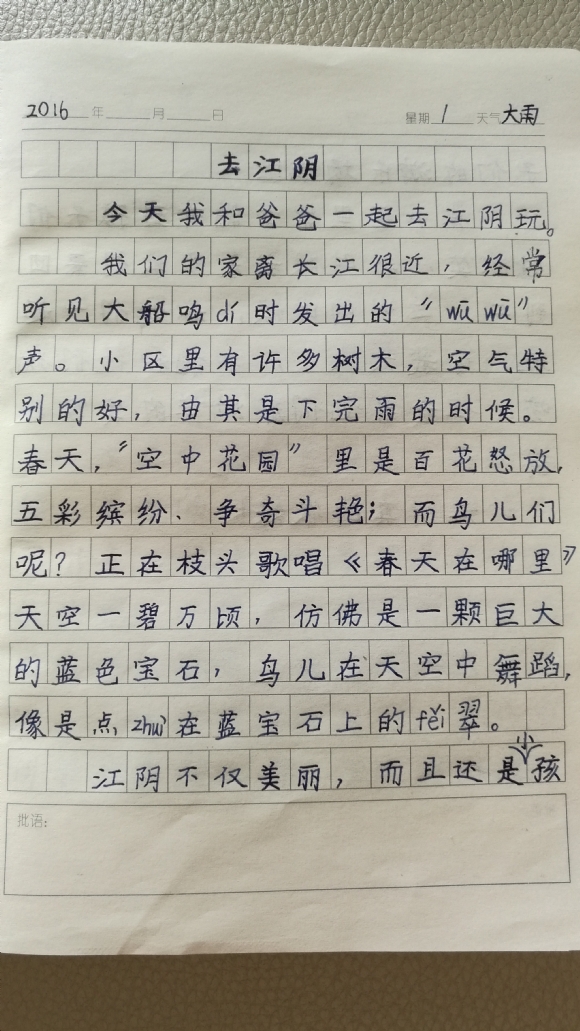 2016年 月 日 星期1 天气大雨
去江阴
今天我和爸爸一起去江阴玩。
我们的家离长江很近，经常
听见大船鸣dí时发出的“wū wū”
声。小区里有许多树木，空气特
别的好，由其是下完雨的时候。
春天，“空中花园”里是百花怒放，
五彩缤纷、争奇斗艳；而鸟儿们
呢？正在枝头歌唱《春天在哪里》
天空一碧万顷，仿佛是一颗巨大
的蓝色宝石，鸟儿在天空中舞蹈，
像是点zhuì在蓝宝石上的fěi翠。
江阴不仅美丽，而且还是小孩
批语：